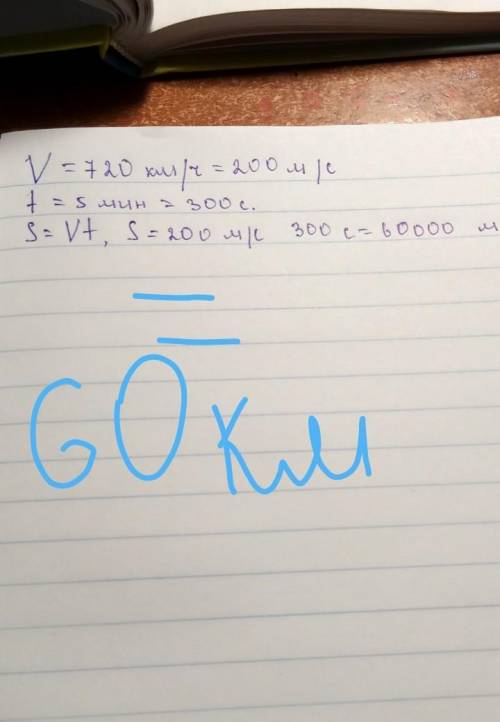 V = 720 км/ч = 200 м/с
t = 5 мин = 300 с.
S = Vt, S = 200 м/с 300 с = 60000 м
=
60 км